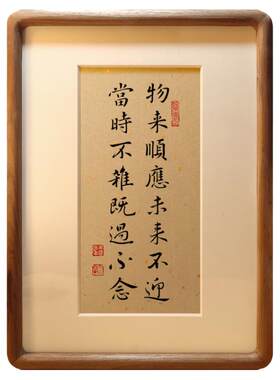 物来順應未来不迎
當時不雜既過不念